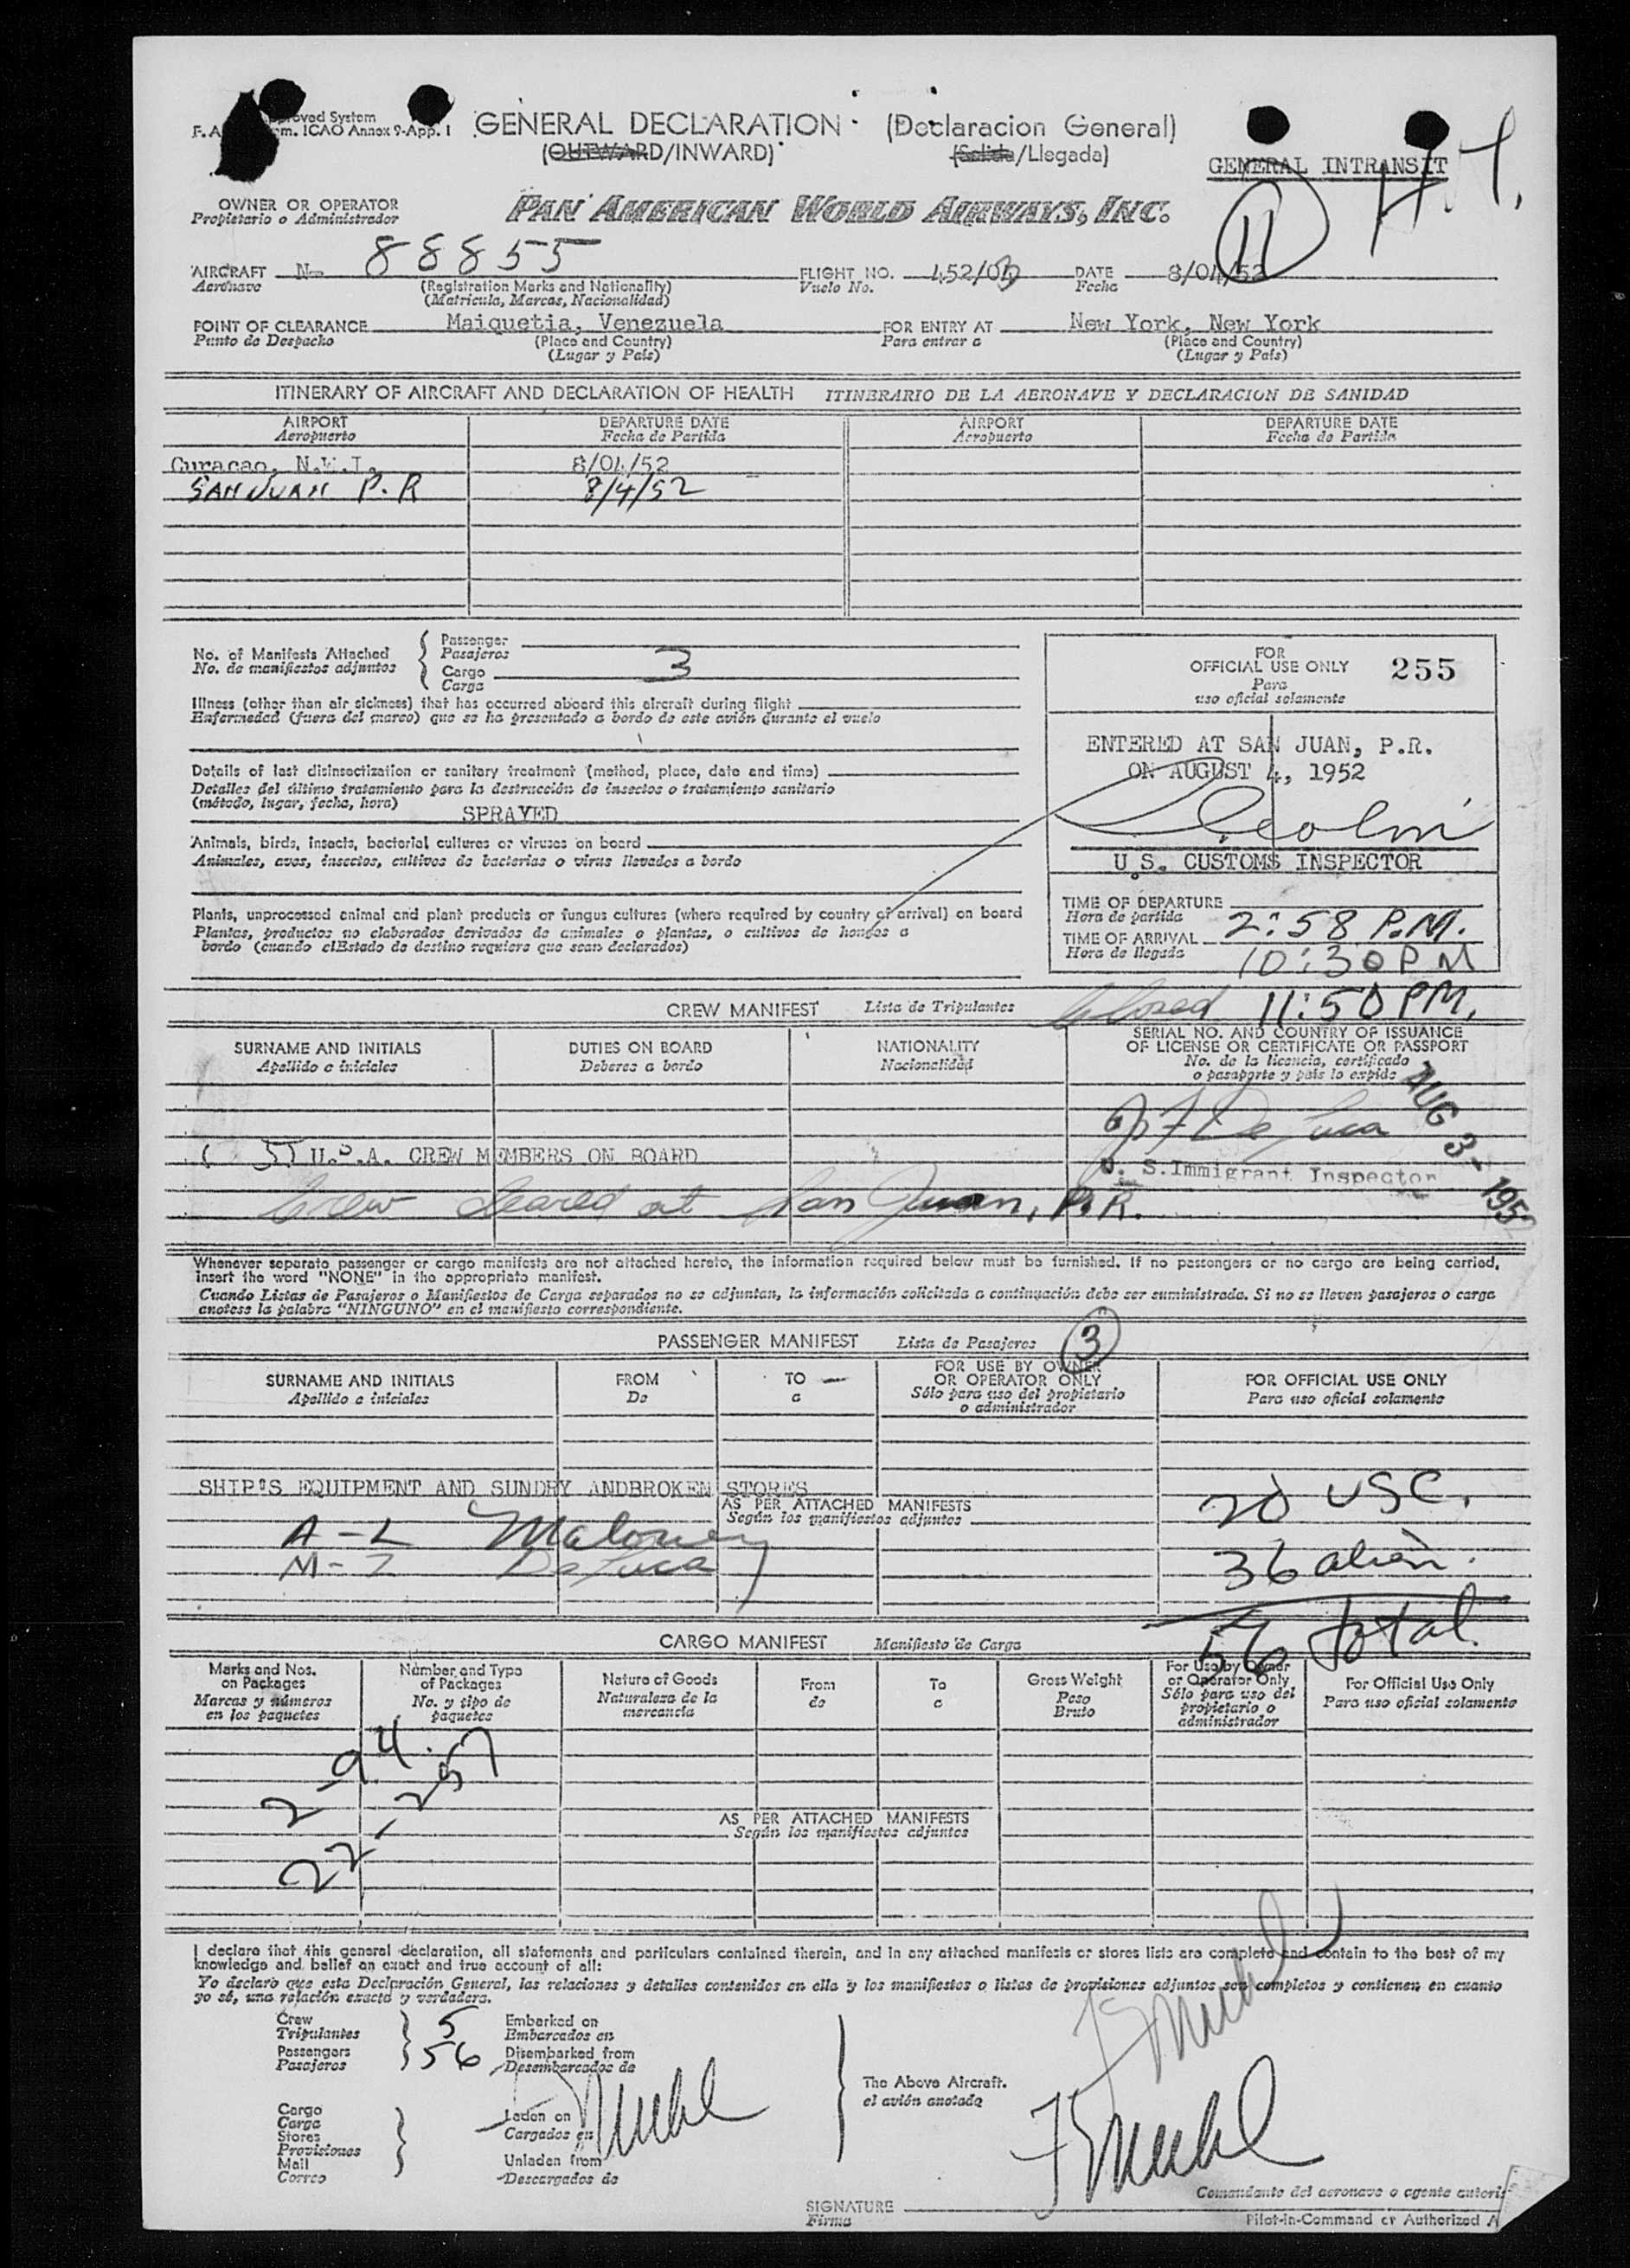 oved System
F. A m. ICAO Annex 9-App. 1
GENERAL DECLARATION (Declaracion General)
(OUTWARD/INWARD) (Salida/Llegada)
GENERAL INTRANSIT
11
OWNER OR OPERATOR
Propietario o Administrador
PAN AMERICAN WORLD AIRWAYS, INC.
AIRCRAFT N- 88855 FLIGHT NO. 452/03 DATE 8/04/52
Aeronave (Registration Marks and Nationality) Vuelo No. Fecha
(Matricula, Marcas, Nacionalidad)
POINT OF CLEARANCE Maiquetia, Venezuela FOR ENTRY AT New York, New York
Punto de Despacho (Place and Country) Para entrar a (Place and Country)
(Lugar y País) (Lugar y País)
ITINERARY OF AIRCRAFT AND DECLARATION OF HEALTH ITINERARIO DE LA AERONAVE Y DECLARACION DE SANIDAD
AIRPORT DEPARTURE DATE AIRPORT DEPARTURE DATE
Aeropuerto Fecha de Partida Aeropuerto Fecha de Partida
Curacao, N.W.I. 8/04/52
SAN JUAN P.R 8/4/52
No. of Manifests Attached
No. de manifiestos adjuntos
Passenger
Pasajeros
Cargo
Carga
3
Illness (other than air sickness) that has occurred aboard this aircraft during flight
Enfermedad (fuera del mareo) que se ha presentado a bordo de este avión durante el vuelo
Details of last disinsectization or sanitary treatment (method, place, date and time)
Detalles del último tratamiento para la destrucción de insectos o tratamiento sanitario
(método, lugar, fecha, hora)
SPRAYED
Animals, birds, insects, bacterial cultures or viruses on board
Animales, aves, insectos, cultivos de bacterias o virus llevados a bordo
Plants, unprocessed animal and plant products or fungus cultures (where required by country of arrival) on board
Plantas, productos no elaborados derivados de animales o plantas, o cultivos de hongos a
bordo (cuando elEstado de destino requiera que sean declarados)
FOR
OFFICIAL USE ONLY 255
Para
uso oficial solamente
ENTERED AT SAN JUAN, P.R.
ON AUGUST 4, 1952
U.S. CUSTOMS INSPECTOR
TIME OF DEPARTURE
Hora de partida 2:58 P.M.
TIME OF ARRIVAL
Hora de llegada 10:30 PM
Closed 11:50 PM.
CREW MANIFEST Lista de Tripulantes
SURNAME AND INITIALS DUTIES ON BOARD NATIONALITY SERIAL NO. AND COUNTRY OF ISSUANCE
OF LICENSE OR CERTIFICATE OR PASSPORT
Apellido e iniciales Deberes a bordo Nacionalidad No. de la licencia, certificado
o pasaporte y país lo expide
AUG 3 - 1952
J F De Luca
( 5) U.S.A. CREW MEMBERS ON BOARD
U. S. Immigrant Inspector
Crew cleared at San Juan, P.R.
Whenever separate passenger or cargo manifests are not attached hereto, the information required below must be furnished. If no passengers or no cargo are being carried,
insert the word "NONE" in the appropriate manifest.
Cuando Listas de Pasajeros o Manifiestos de Carga separados no se adjuntan, la información solicitada a continuación debe ser suministrada. Si no se lleven pasajeros o carga
anotese la palabra "NINGUNO" en el manifiesto correspondiente.
PASSENGER MANIFEST Lista de Pasajeros 3
SURNAME AND INITIALS FROM TO FOR USE BY OWNER
OR OPERATOR ONLY FOR OFFICIAL USE ONLY
Apellido e iniciales De a Sólo para uso del propietario
o administrador Para uso oficial solamente
SHIP'S EQUIPMENT AND SUNDRY ANDBROKEN STORES
AS PER ATTACHED MANIFESTS
Según los manifiestos adjuntos
20 USC.
A - L Maloney
M - Z De Luca
36 alien.
56 total
CARGO MANIFEST Manifiesto de Carga
Marks and Nos.
on Packages
Marcas y números
en los paquetes
Number and Type
of Packages
No. y tipo de
paquetes
Nature of Goods
Naturaleza de la
mercancía
From
de
To
a
Gross Weight
Peso
Bruto
For Use by Owner
or Operator Only
Sólo para uso del
propietario o
administrador
For Official Use Only
Para uso oficial solamente
2-94.
22-257
AS PER ATTACHED MANIFESTS
Según los manifiestos adjuntos
I declare that this general declaration, all statements and particulars contained therein, and in any attached manifests or stores lists are complete and contain to the best of my
knowledge and belief an exact and true account of all:
Yo declaro que esta Declaración General, las relaciones y detalles contenidos en ella y los manifiestos o listas de provisiones adjuntos son completos y contienen en cuanto
yo sé, una relación exacta y verdadera.
Crew
Tripulantes 5
Passengers
Pasajeros 56
Embarked on
Embarcados en
Disembarked from
Desembarcados de
The Above Aircraft.
el avión anotado
Cargo
Carga
Stores
Provisiones
Mail
Correo
Laden on
Cargados en
Unladen from
Descargados de
Comandante del aeronave o agente autoris
SIGNATURE
Firma
Pilot-in-Command or Authorized A